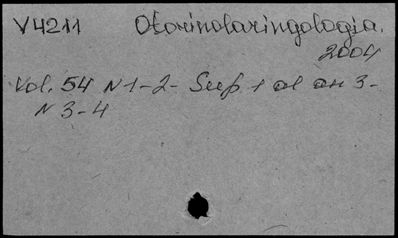 V4211 Otorinolaringologia.
2004
Vol. 54 N 1-2- Sup 1 al an 3-
N 3-4